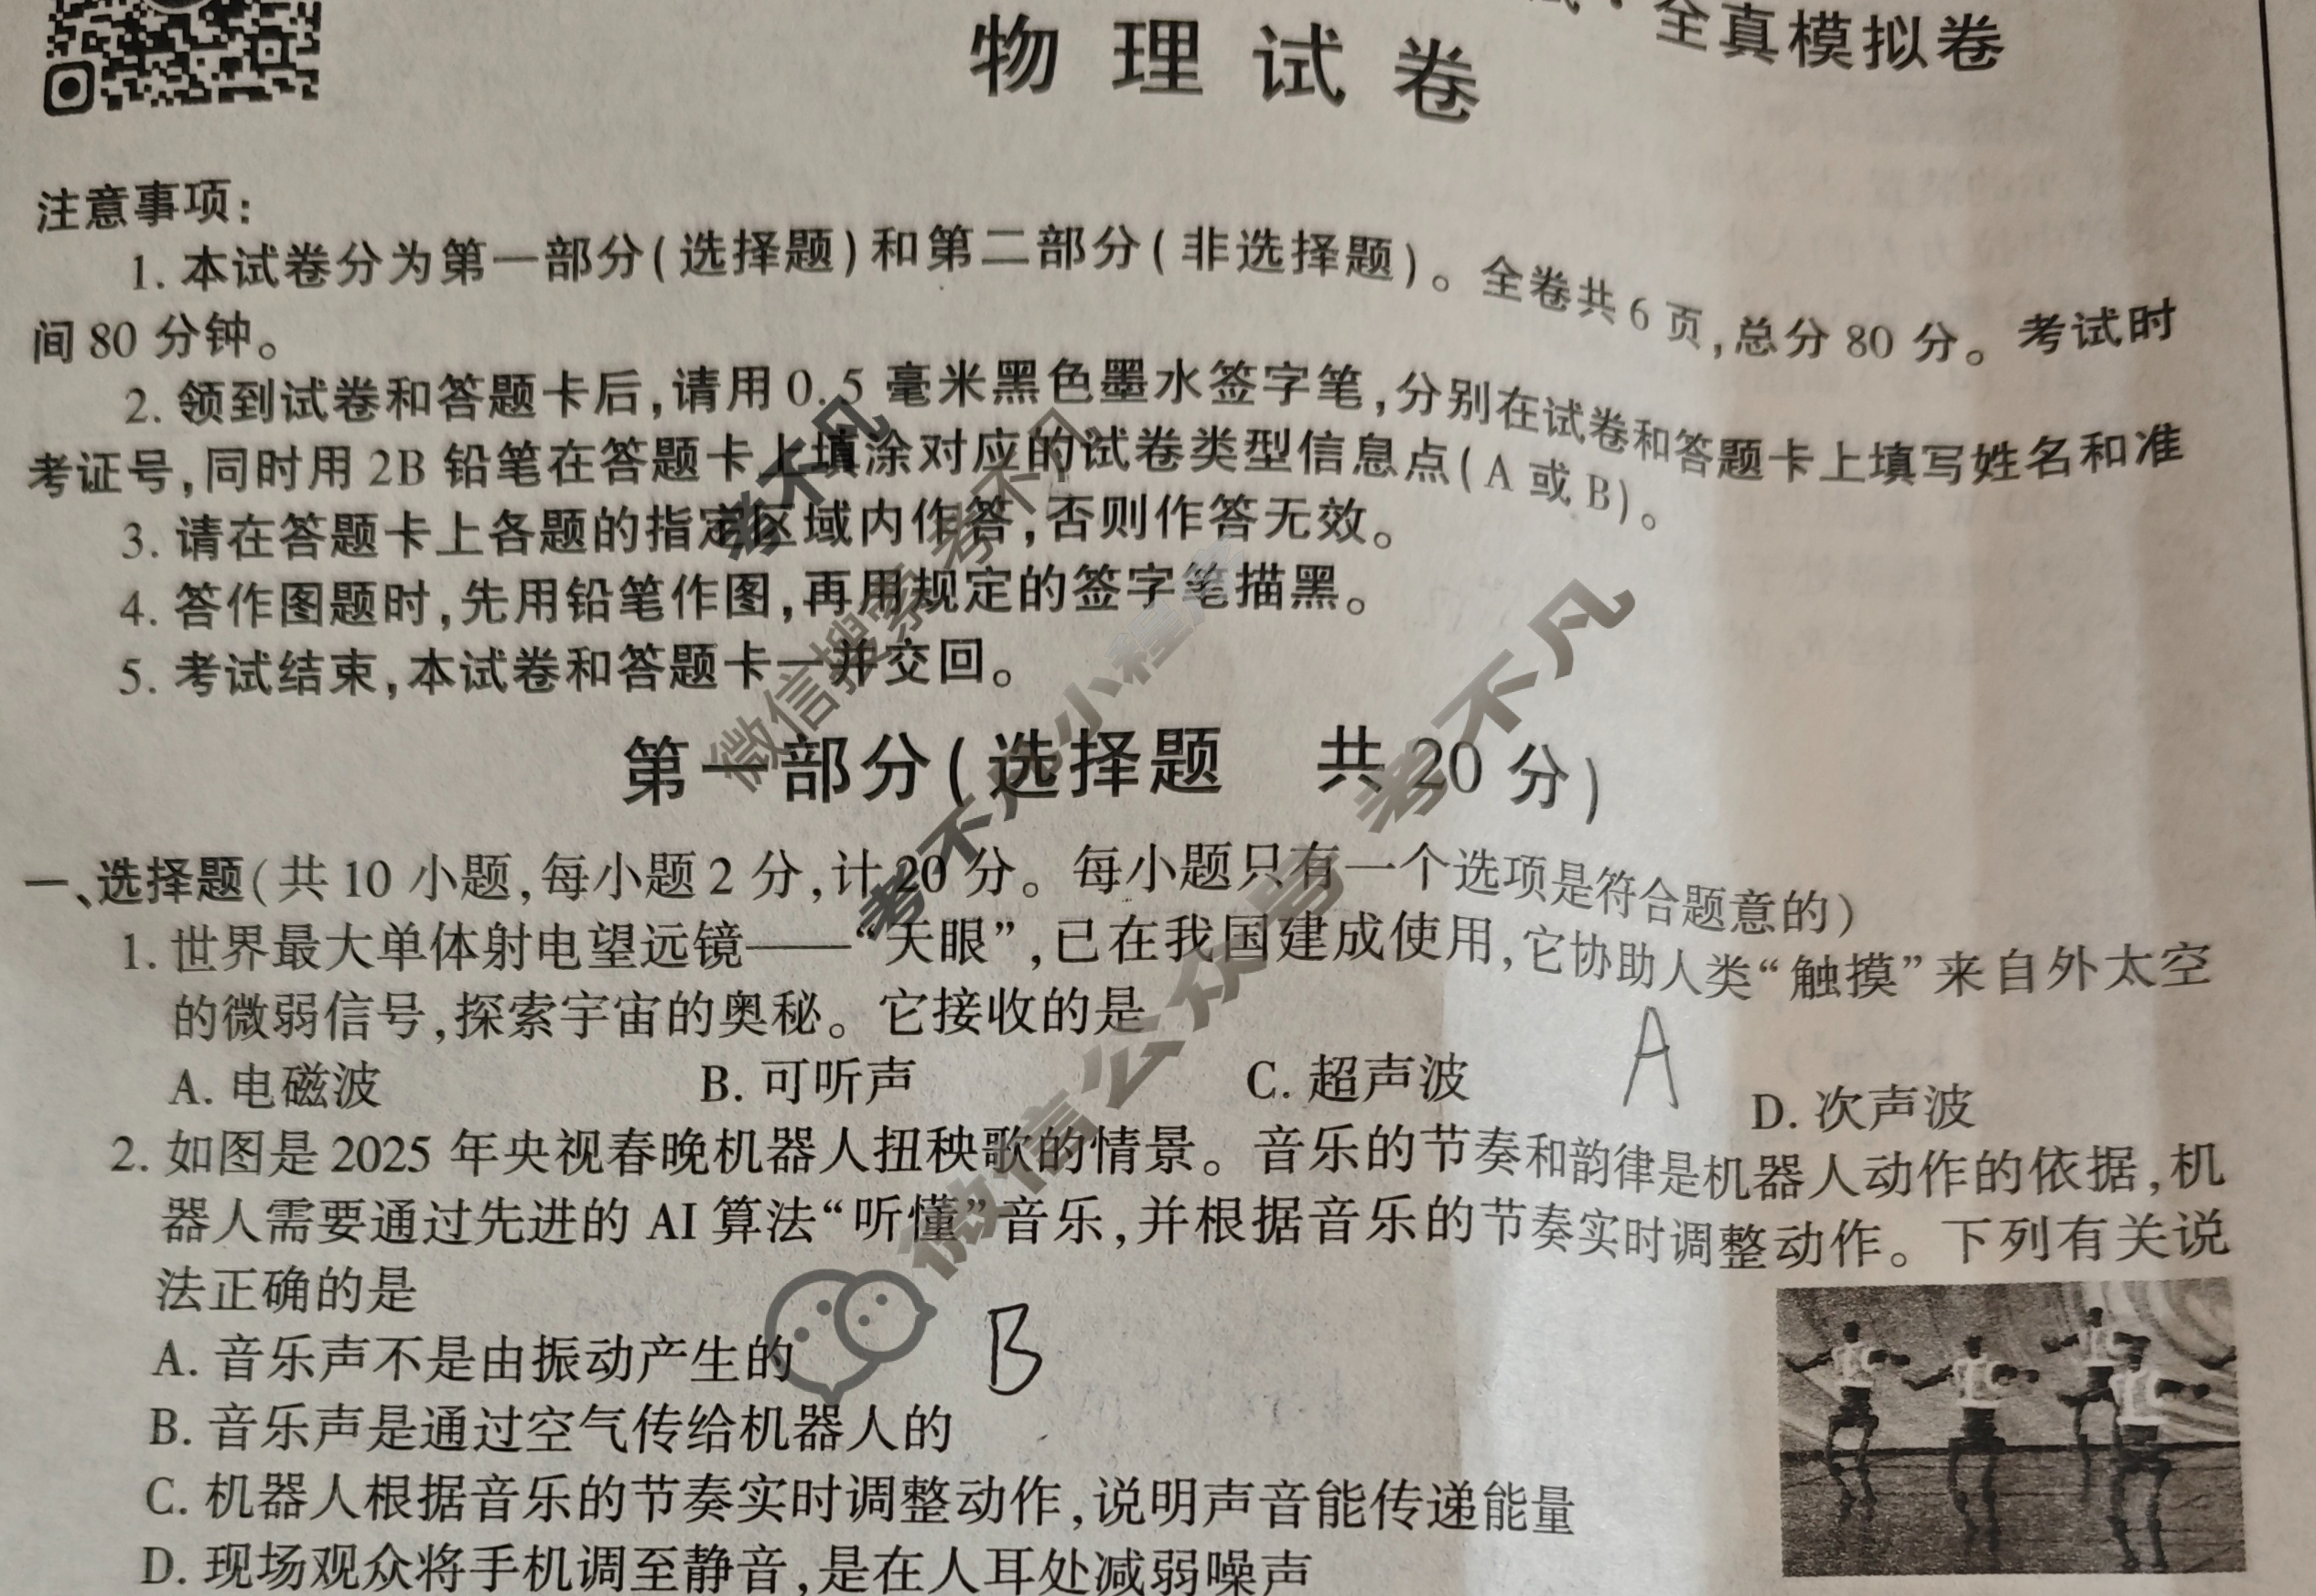 全真模拟卷
物理试卷
注意事项：
1. 本试卷分为第一部分(选择题)和第二部分(非选择题)。全卷共6页,总分80分。考试时
间80分钟。
2. 领到试卷和答题卡后,请用0.5毫米黑色墨水签字笔,分别在试卷和答题卡上填写姓名和准
考证号,同时用2B铅笔在答题卡上填涂对应的试卷类型信息点(A或B)。
3. 请在答题卡上各题的指定区域内作答,否则作答无效。
4. 答作图题时,先用铅笔作图,再用规定的签字笔描黑。
5. 考试结束,本试卷和答题卡一并交回。
考不凡
微信搜索 考不凡
考不凡小程序
微信公众号 考不凡
第一部分(选择题 共20分)
一、选择题(共10小题,每小题2分,计20分。每小题只有一个选项是符合题意的)
1. 世界最大单体射电望远镜——“天眼”,已在我国建成使用,它协助人类“触摸”来自外太空
的微弱信号,探索宇宙的奥秘。它接收的是
A
A. 电磁波 B. 可听声 C. 超声波 D. 次声波
2. 如图是2025年央视春晚机器人扭秧歌的情景。音乐的节奏和韵律是机器人动作的依据,机
器人需要通过先进的AI算法“听懂”音乐,并根据音乐的节奏实时调整动作。下列有关说
法正确的是
B
A. 音乐声不是由振动产生的
B. 音乐声是通过空气传给机器人的
C. 机器人根据音乐的节奏实时调整动作,说明声音能传递能量
D. 现场观众将手机调至静音,是在人耳处减弱噪声